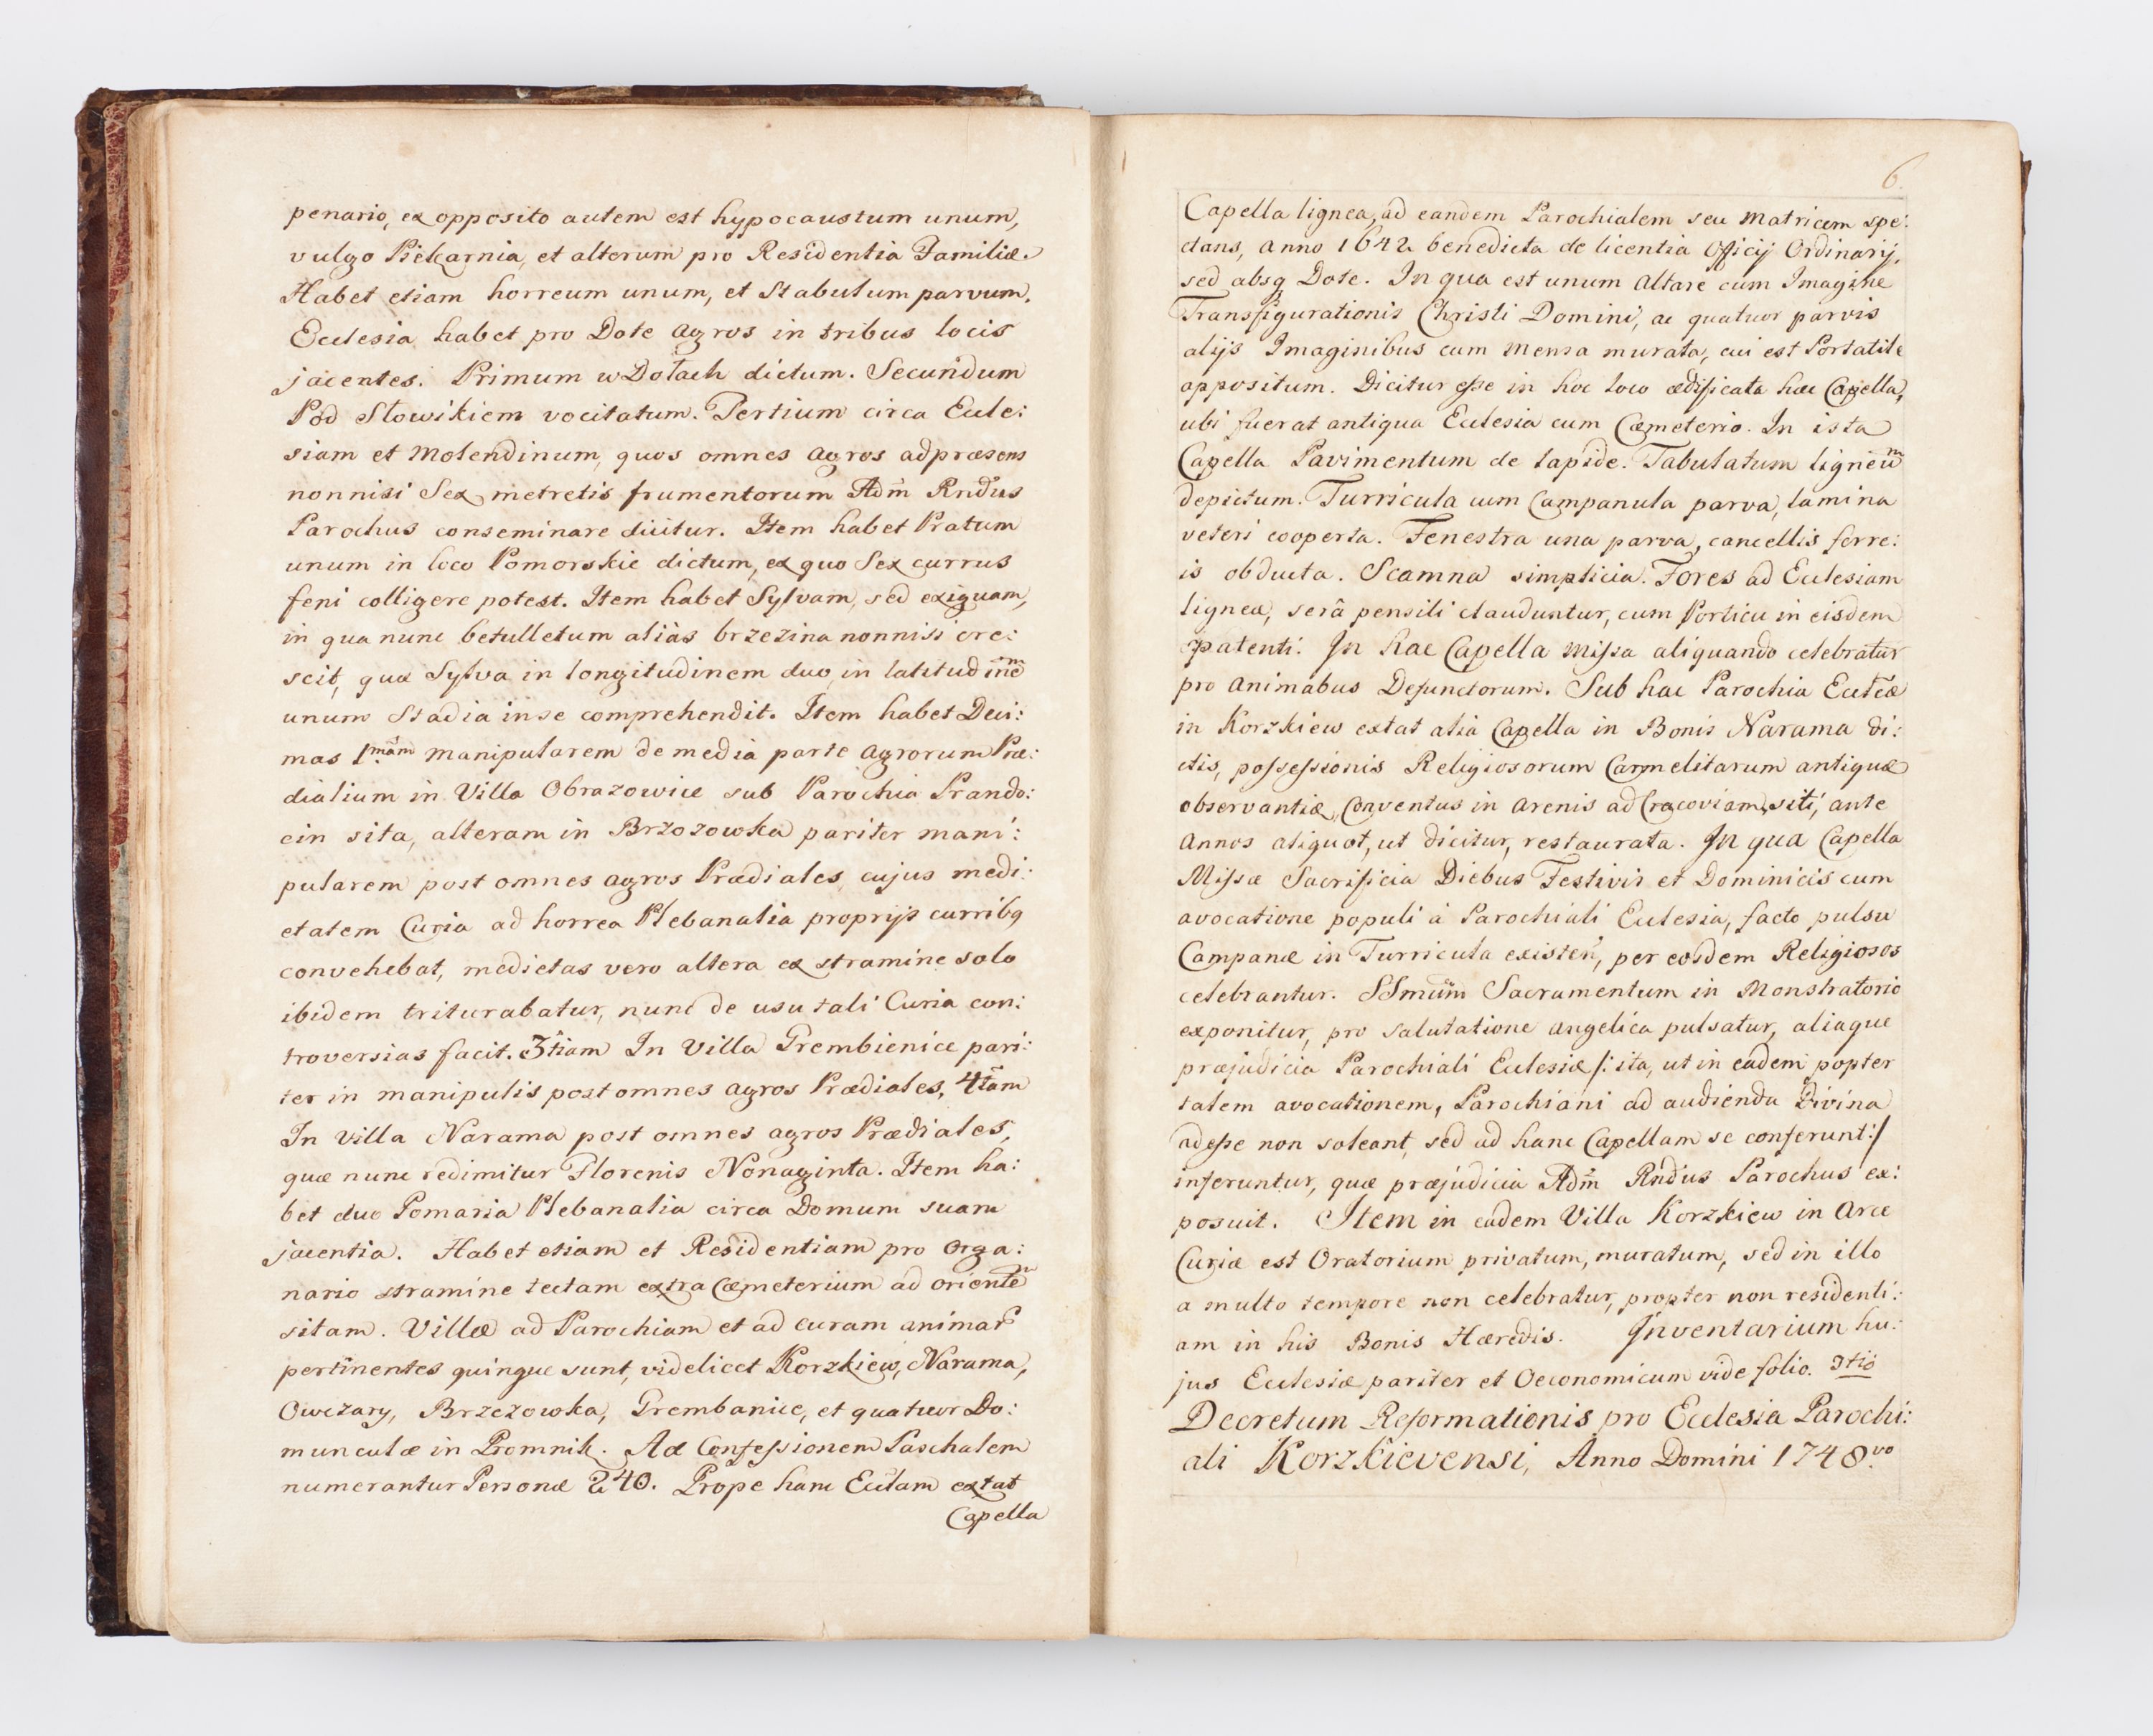 penario, ex opposito autem est hypocaustum unum,
vulgo Piekarnia, et alterum pro Residentia Familiæ.
Habet etiam horreum unum, et Stabulum parvum.
Ecclesia habet pro Dote agros in tribus locis
jacentes. Primum w Dołach dictum. Secundum
Pod Słowikiem vocitatum. Tertium circa Eccle:
siam et Molendinum, quos omnes agros adpræsens
nonnisi Sex metretis frumentorum Adm̃ Rñdus
Parochus conseminare dicitur. Item habet Pratum
unum in loco Pomorskie dictum, ex quo Sex currus
feni colligere potest. Item habet Sylvam, sed exiguam,
in qua nunc betulletum aliàs brzezina nonnisi cre:
scit, quæ Sylva in longitudinem duo, in latitudinẽ
unum Stadia in se comprehendit. Item habet Deci:
mas 1mãm manipularem de media parte agrorum Præ:
dialium in Villa Obrazowice sub Parochia Prando:
cin sita, alteram in Brzozowka pariter mani:
pularem post omnes agros Prædiales, cujus medi:
etatem Curia ad horrea Plebanalia proprijs curribq
convehebat, medietas vero altera ex stramine solo
ibidem triturabatur, nunc de usu tali Curia con:
troversias facit. 3tiam In Villa Grembienice pari:
ter in manipulis post omnes agros Prædiales, 4tãm
In Villa Narama post omnes agros Prædiales,
quæ nunc redimitur Florenis Nonaginta. Item ha:
bet duo Pomaria Plebanalia circa Domum suam
jacentia. Habet etiam et Residentiam pro Orga:
nario stramine tectam extra Cœmeterium ad orientẽ
sitam. Villæ ad Parochiam et ad curam animar̃
pertinentes quinque sunt, videlicet Korzkiew, Narama,
Owczary, Brzezowka, Grembanice, et quatuor Do:
munculæ in Promnik. Ad Confessionem Paschalem
numerantur Personæ 240. Prope hanc Ecclam extat
Capella
6.
Capella lignea, ad eandem Parochialem seu Matricem spe:
ctans, Anno 1642 benedicta de licentia Officij Ordinarij,
sed absq Dote. In qua est unum Altare cum Imagine
Transfigurationis Christi Domini, ac quatuor parvis
alijs Imaginibus cum mensa murata, cui est Portatile
appositum. Dicitur esse in hoc loco ædificata hæc Capella,
ubi fuerat antiqua Ecclesia cum Cœmeterio. In ista
Capella Pavimentum de lapide. Tabulatum ligneũ
depictum. Turricula cum Campanula parva, lamina
veteri cooperta. Fenestra una parva, cancellis ferre:
is obducta. Scamna simplicia. Fores ad Ecclesiam
ligneæ, serâ pensili clauduntur, cum Porticu in eisdem
patenti. In hac Capella Missa aliquando celebratur
pro Animabus Defunctorum. Sub hac Parochia Ecclæ
in Korzkiew extat alia Capella in Bonis Narama di:
ctis, possessionis Religiosorum Carmelitarum antiquæ
observantiæ, Conventus in Arenis ad Cracoviam siti, ante
Annos aliquot, ut dicitur, restaurata. In qua Capella
Missæ Sacrificia Diebus Festivis et Dominicis cum
avocatione populi à Parochiali Ecclesia, facto pulsu
Campanæ in Turricula existeñ, per eosdem Religiosos
celebrantur. SSmũm Sacramentum in Monstratorio
exponitur, pro Salutatione Angelica pulsatur, aliaque
præjudicia Parochiali Ecclesiæ /: ita, ut in eadem popter
talem avocationem, Parochiani ad audienda Divina
adesse non soleant, sed ad hanc Capellam se conferunt :/
inferuntur, quæ præjudicia Adm̃ Rñdus Parochus ex:
posuit. Item in eadem Villa Korzkiew in Arce
Curiæ est Oratorium privatum, muratum, sed in illo
a multo tempore non celebratur, propter non residenti:
am in his Bonis Hæredis. Inventarium hu:
jus Ecclesiæ pariter et Oeconomicum vide folio. 3tiõ
Decretum Reformationis pro Ecclesia Parochi:
ali Korzkievensi, Anno Domini 1748vo